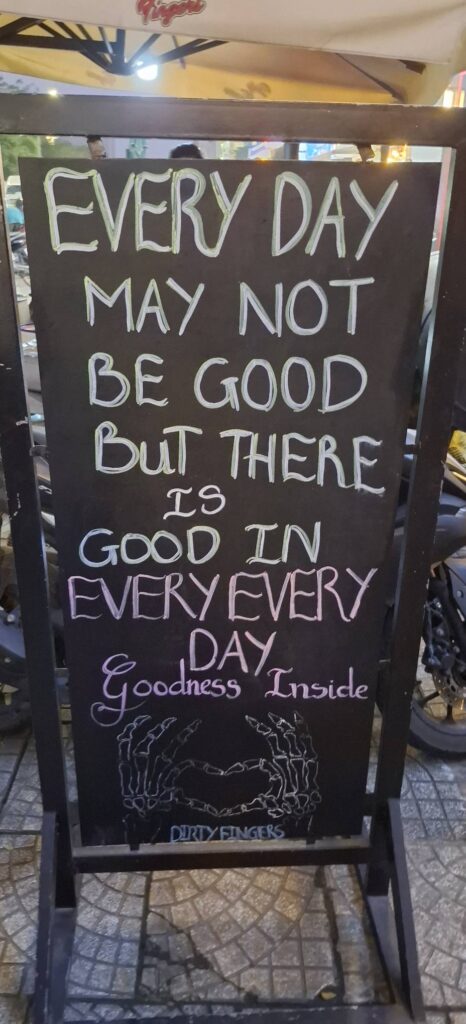 Fingers
EVERY DAY
MAY NOT
BE GOOD
BUT THERE
IS
GOOD IN
EVERY EVERY
DAY
Goodness Inside
DIRTY FINGERS